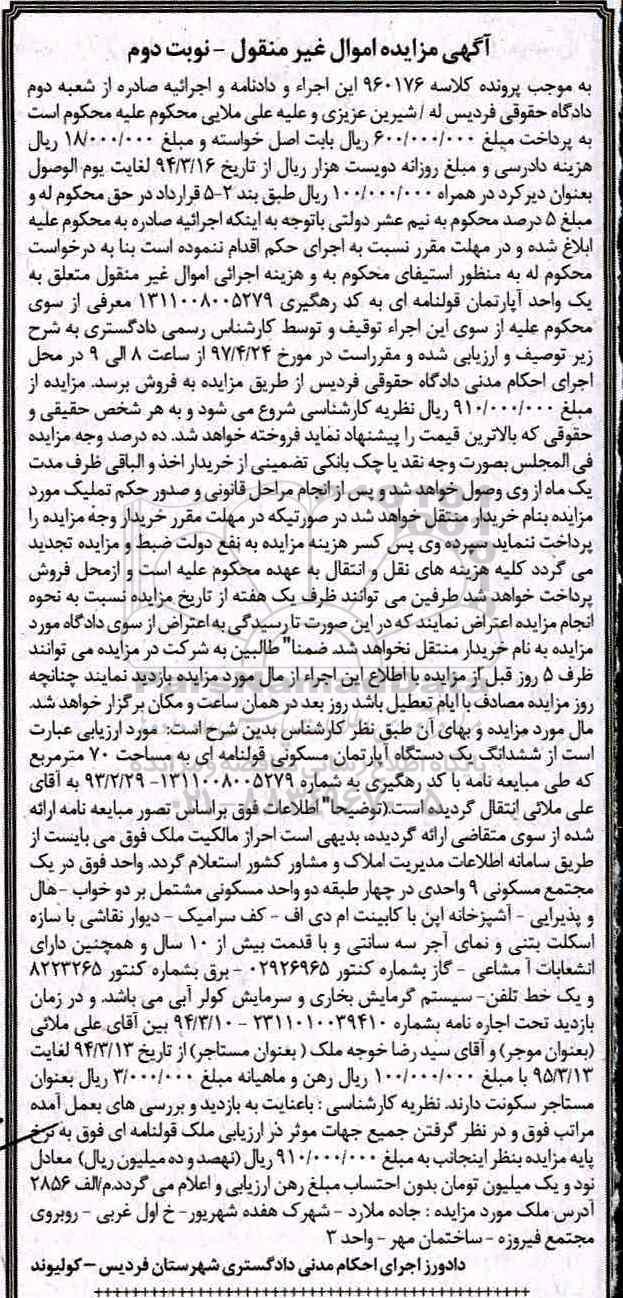 آگهی مزایده اموال غیر منقول - نوبت دوم
به موجب پرونده کلاسه ۹۶۰۱۷۶ این اجراء و دادنامه و اجرائیه صادره از شعبه دوم
دادگاه حقوقی فردیس له / شیرین عزیزی و علیه علی ملایی محکوم علیه محکوم است
به پرداخت مبلغ ۶۰۰/۰۰۰/۰۰۰ ریال بابت اصل خواسته و مبلغ ۱۸/۰۰۰/۰۰۰ ریال
هزینه دادرسی و مبلغ روزانه دویست هزار ریال از تاریخ ۹۴/۳/۱۶ لغایت یوم الوصول
بعنوان دیرکرد در همراه ۱۰۰/۰۰۰/۰۰۰ ریال طبق بند ۲-۵ قرارداد در حق محکوم له و
مبلغ ۵ درصد محکوم به نیم عشر دولتی باتوجه به اینکه اجرائیه صادره به محکوم علیه
ابلاغ شده و در مهلت مقرر نسبت به اجرای حکم اقدام ننموده است بنا به درخواست
محکوم له به منظور استیفای محکوم به و هزینه اجرائی اموال غیر منقول متعلق به
یک واحد آپارتمان قولنامه ای به کد رهگیری ۱۳۱۱۰۰۸۰۰۵۲۷۹ معرفی از سوی
محکوم علیه از سوی این اجراء توقیف و توسط کارشناس رسمی دادگستری به شرح
زیر توصیف و ارزیابی شده و مقرراست در مورخ ۹۷/۴/۲۴ از ساعت ۸ الی ۹ در محل
اجرای احکام مدنی دادگاه حقوقی فردیس از طریق مزایده به فروش برسد. مزایده از
مبلغ ۹۱۰/۰۰۰/۰۰۰ ریال نظریه کارشناسی شروع می شود و به هر شخص حقیقی و
حقوقی که بالاترین قیمت را پیشنهاد نماید فروخته خواهد شد. ده درصد وجه مزایده
فی المجلس بصورت وجه نقد یا چک بانکی تضمینی از خریدار اخذ و الباقی ظرف مدت
یک ماه از وی وصول خواهد شد و پس از انجام مراحل قانونی و صدور حکم تملیک مورد
مزایده بنام خریدار منتقل خواهد شد در صورتیکه در مهلت مقرر خریدار وجه مزایده را
پرداخت ننماید سپرده وی پس کسر هزینه مزایده به نفع دولت ضبط و مزایده تجدید
می گردد کلیه هزینه های نقل و انتقال به عهده محکوم علیه است و ازمحل فروش
پرداخت خواهد شد طرفین می توانند ظرف یک هفته از تاریخ مزایده نسبت به نحوه
انجام مزایده اعتراض نمایند که در این صورت تا رسیدگی به اعتراض از سوی دادگاه مورد
مزایده به نام خریدار منتقل نخواهد شد. ضمنا" طالبین به شرکت در مزایده می توانند
ظرف ۵ روز قبل از مزایده با اطلاع این اجراء از مال مورد مزایده بازدید نمایند چنانچه
روز مزایده مصادف با ایام تعطیل باشد روز بعد در همان ساعت و مکان برگزار خواهد شد.
مال مورد مزایده و بهای آن طبق نظر کارشناس بدین شرح است: مورد ارزیابی عبارت
است از ششدانگ یک دستگاه آپارتمان مسکونی قولنامه ای به مساحت ۷۰ مترمربع
که طی مبایعه نامه با کد رهگیری به شماره ۱۳۱۱۰۰۸۰۰۵۲۷۹- ۹۳/۲/۲۹ به آقای
علی ملائی انتقال گردیده است.(توضیحا" اطلاعات فوق براساس تصور مبایعه نامه ارائه
شده از سوی متقاضی ارائه گردیده، بدیهی است احراز مالکیت ملک فوق می بایست از
طریق سامانه اطلاعات مدیریت املاک و مشاور کشور استعلام گردد. واحد فوق در یک
مجتمع مسکونی ۹ واحدی در چهار طبقه دو واحد مسکونی مشتمل بر دو خواب -هال
و پذیرایی - آشپزخانه اپن با کابینت ام دی اف - کف سرامیک - دیوار نقاشی با سازه
اسکلت بتنی و نمای آجر سه سانتی و با قدمت بیش از ۱۰ سال و همچنین دارای
انشعابات آ مشاعی - گاز بشماره کنتور ۰۲۹۲۶۹۶۵ - برق بشماره کنتور ۸۲۲۳۲۶۵
و یک خط تلفن- سیستم گرمایش بخاری و سرمایش کولر آبی می باشد. و در زمان
بازدید تحت اجاره نامه بشماره ۲۳۱۱۰۱۰۰۳۹۴۱۰ - ۹۴/۳/۱۰ بین آقای علی ملائی
(بعنوان موجر) و آقای سید رضا خوجه ملک ( بعنوان مستاجر) از تاریخ ۹۴/۳/۱۳ لغایت
۹۵/۳/۱۳ با مبلغ ۱۰۰/۰۰۰/۰۰۰ ریال رهن و ماهیانه مبلغ ۳/۰۰۰/۰۰۰ ریال بعنوان
مستاجر سکونت دارند. نظریه کارشناسی : باعنایت به بازدید و بررسی های بعمل آمده
مراتب فوق و در نظر گرفتن جمیع جهات موثر در ارزیابی ملک قولنامه ای فوق به نرخ
پایه مزایده بنظر اینجانب به مبلغ ۹۱۰/۰۰۰/۰۰۰ ریال (نهصد و ده میلیون ریال) معادل
نود و یک میلیون تومان بدون احتساب مبلغ رهن ارزیابی و اعلام می گردد.م/الف ۲۸۵۶
آدرس ملک مورد مزایده : جاده ملارد - شهرک هفده شهریور- خ اول غربی - روبروی
مجتمع فیروزه - ساختمان مهر - واحد ۳
دادورز اجرای احکام مدنی دادگستری شهرستان فردیس - کولیوند
ParsNamadData
پایگاه اطلاع رسانی مناقصه و مزایده